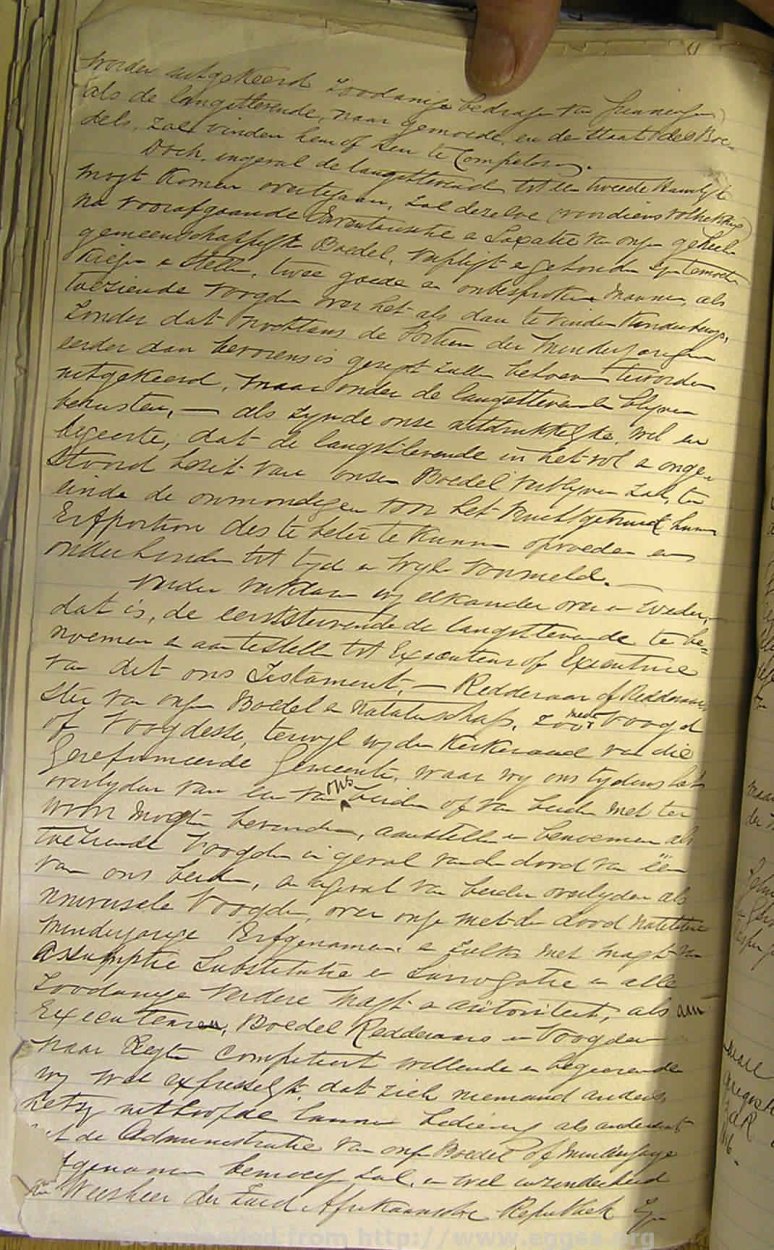 worden uitgekeerd zoodanige bedrage van penningen
als de langstlevende, naar gemoede, en de staat des Boe-
dels, zal vinden hem of hen te Competeren.
Doch, ingeval de langstlevende tot een tweede Huwelijk
mogt komen overtegaan, zal dezelve
na voorafgaande Inventarisatie & Taxatie van onze geheele
gemeenschappelijk Boedel, verpligt & gehouden zyn te moeten
kiezen & stellen, twee goede en onbesproken mannen, als
toeziende Voogden over het als dan te vinden Kinderbewys,
zonder dat nochtans de Portien der Minderjarigen
eerder dan bevorens is gezegt zullen behoeven te worden
uitgekeerd, maar onder de langstlevende blyven
berusten, — als zynde onse uitdrukkelyke wil en
begeerte, dat de langstlevende in het vol & onge-
stoord bezit van onsen Boedel verblyven zal, ten
einde de onmondigen voor het vruchtgebruik hunner
Erfportien des te beter te kunnen opvoeden en
onderhouden tot tyd en wyle voormeld. —
Verder verklaren wy elkander over en weder,
dat is, de eerststervende de langstlevende te be-
noemen & aantestellen tot Executeur of Executrice
van dit ons Testament, — Redderaar of Redderaar-
ster van onzen Boedel & Nalatenschap, zoo mede Voogd
of Voogdesse, terwyl wy den Kerkeraad van die
Gereformeerde Gemeente, waar wy ons tydens het
overlyden van een van ons beiden of van beiden met ter
woon mogten bevinden, aanstellen en benoemen als
toeziende Voogden in geval van de dood van één
van ons beiden, & ingeval van beider overlyden als
universele Voogden, over onze met de dood natelatene
minderjarige Erfgenamen & zulks met magt van
assumptie Substitutie & Surrogatie en alle
zoodanige verdere magt & autoriteit, als aan
Executeuren, Boedel Redderaars en Voogden
naar Regte Competeert willende en begeerende
wy wel expresselyk dat zich niemand anders
hetzy uit hoofde hunner bediening als anderzins
met de Administratie van onzen Boedel of Minderjarige
Erfgenamen bemoeyen zal, en wel inzonderheid
Weesheer der Zuid Afrikaansche Republiek
Downloaded from http://www.eggsa.org